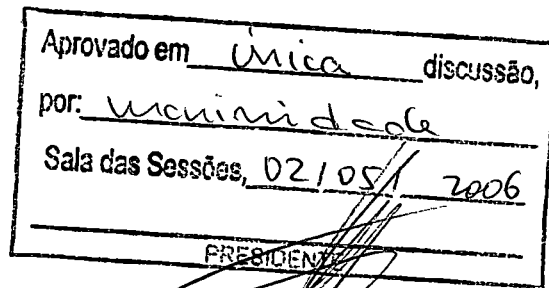 Aprovado em única discussão,
por: unanimidade
Sala das Sessões, 02/05/ 2006
PRESIDENTE